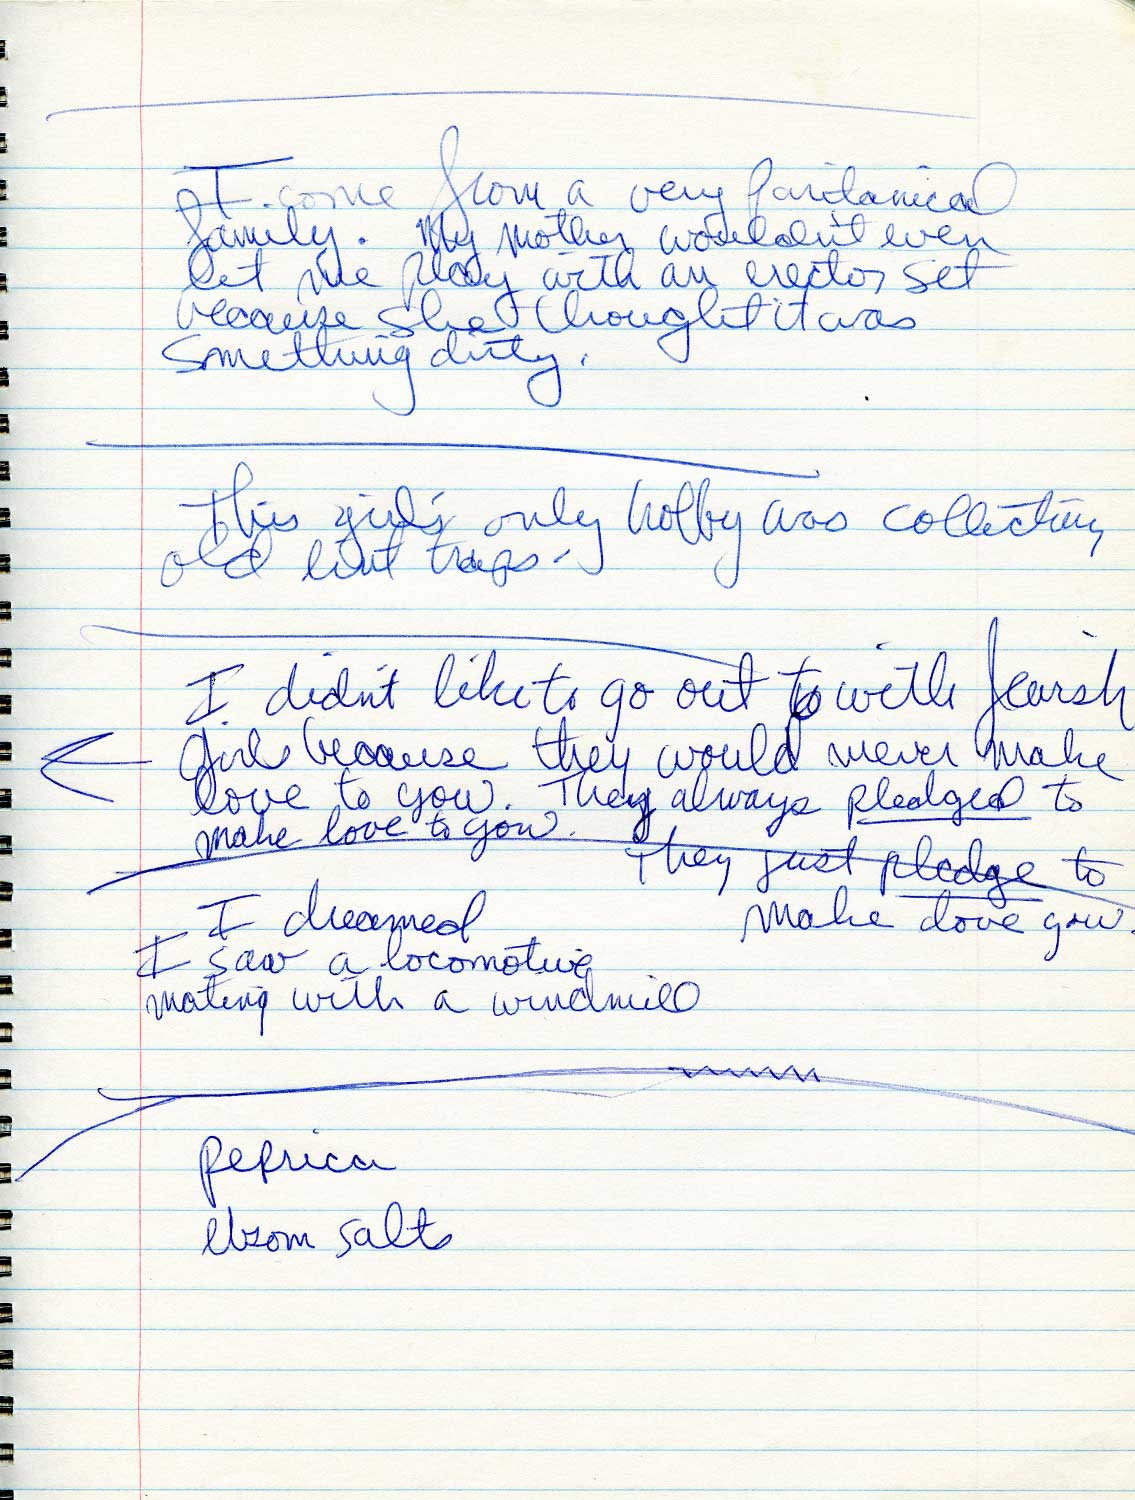 I come from a very puritanical
family. My mother wouldn't even
let me play with an erector set
because she thought it was
something dirty.
This girl's only hobby was collecting
old lint traps.
I didn't like to go out to with Jewish
girls because they would never make
love to you. They always pledged to
make love to you.
They just pledge to
make love you.
I dreamed
I saw a locomotive
mating with a windmill
peprica
ebzom salts